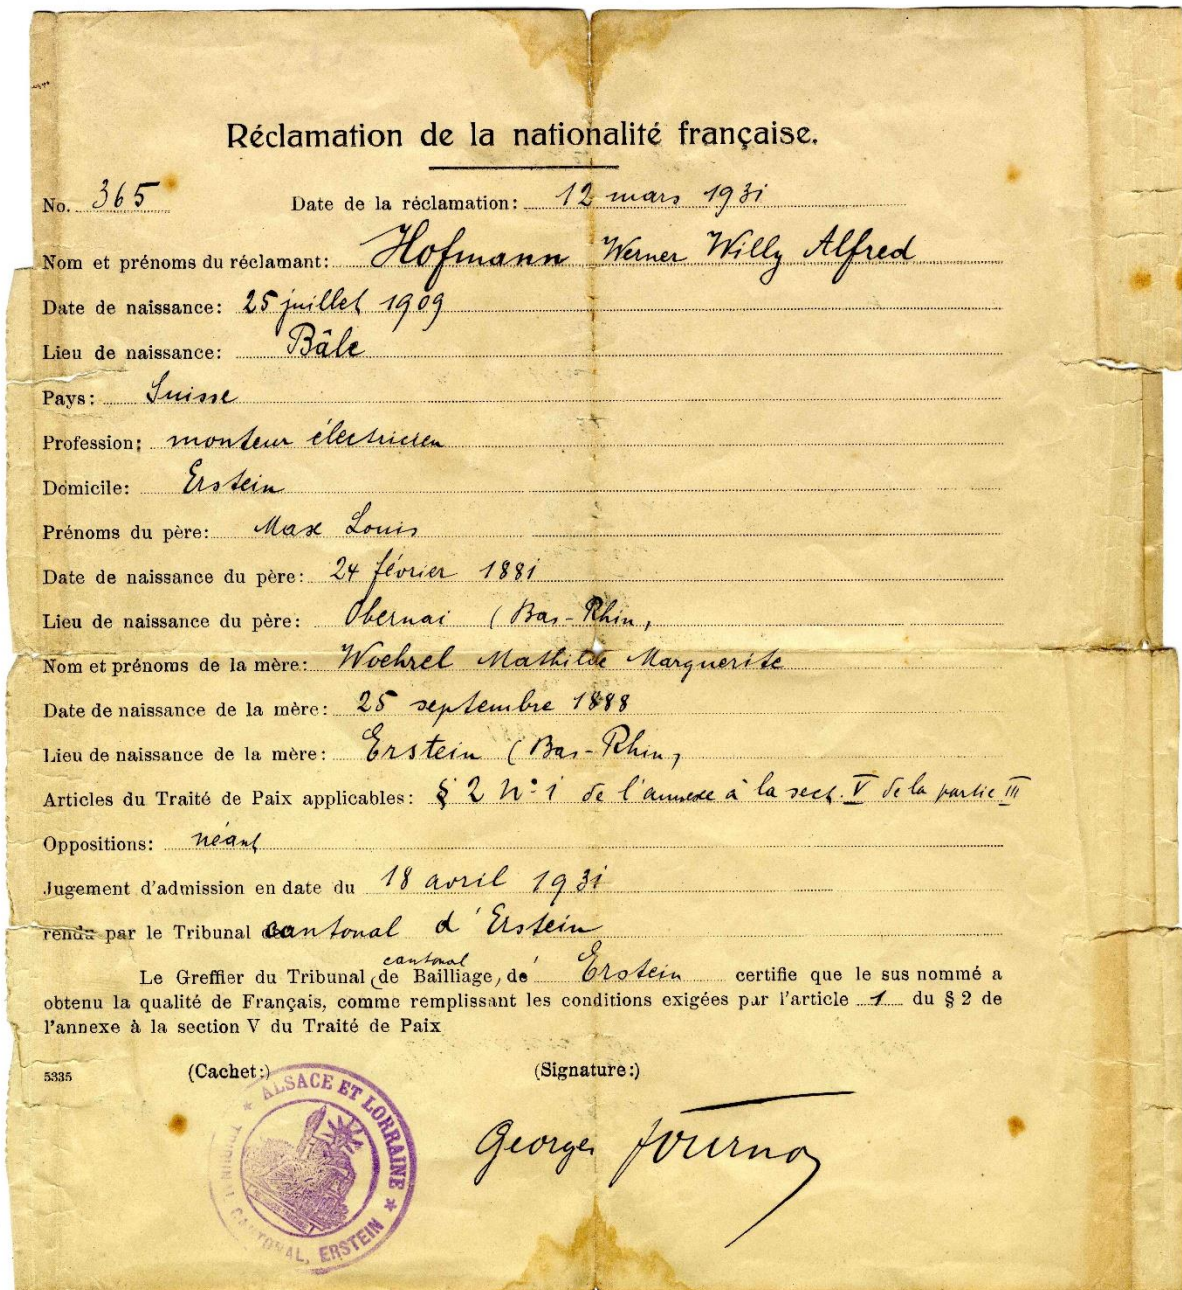 Réclamation de la nationalité française.
No. 365 Date de la réclamation: 12 mars 1931
Nom et prénoms du réclamant: Hofmann Werner Willy Alfred
Date de naissance: 25 juillet 1909
Lieu de naissance: Bâle
Pays: Suisse
Profession: monteur électricien
Domicile: Erstein
Prénoms du père: Max Louis
Date de naissance du père: 24 février 1881
Lieu de naissance du père: Obernai (Bas-Rhin,
Nom et prénoms de la mère: Woehrel Mathilde Marguerite
Date de naissance de la mère: 25 septembre 1888
Lieu de naissance de la mère: Erstein (Bas-Rhin,
Articles du Traité de Paix applicables: § 2 No: 1 de l'annexe à la sect. V de la partie III
Oppositions: néant
Jugement d'admission en date du 18 avril 1931
rendu par le Tribunal cantonal d'Erstein
cantonal
Le Greffier du Tribunal (de Bailliage, de Erstein certifie que le sus nommé a
obtenu la qualité de Français, comme remplissant les conditions exigées par l'article 1 du § 2 de
l'annexe à la section V du Traité de Paix
5335 (Cachet:) (Signature:)
★ ALSACE ET LORRAINE ★
TRIBUNAL CANTONAL, ERSTEIN
Georges